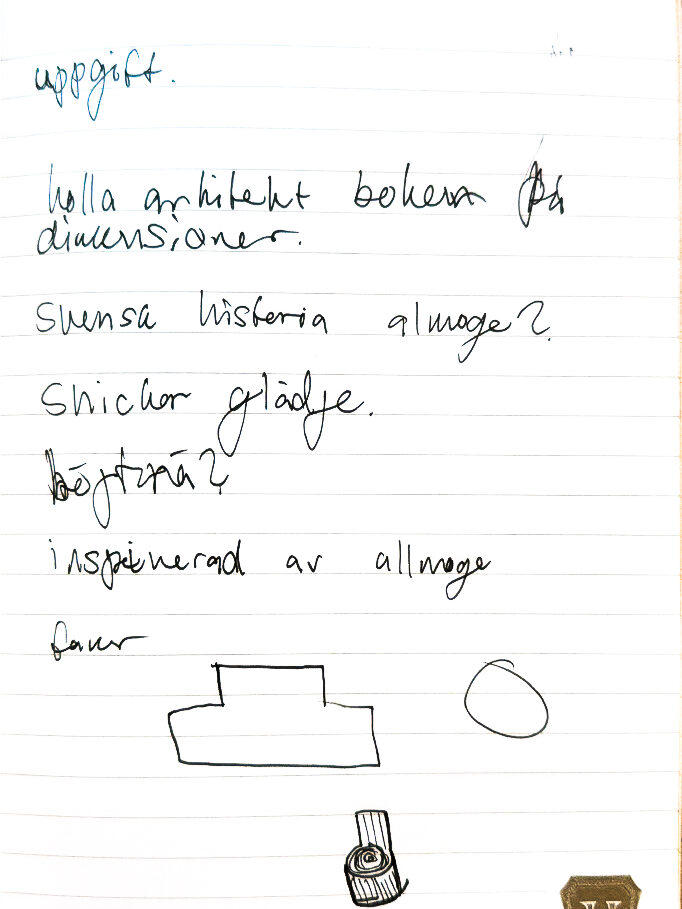 uppgift.
holla arkitekt boken på
dimensioner.
svensa historia almoge?
snickar glädje.
böjträ?
inspirerad av allmoge